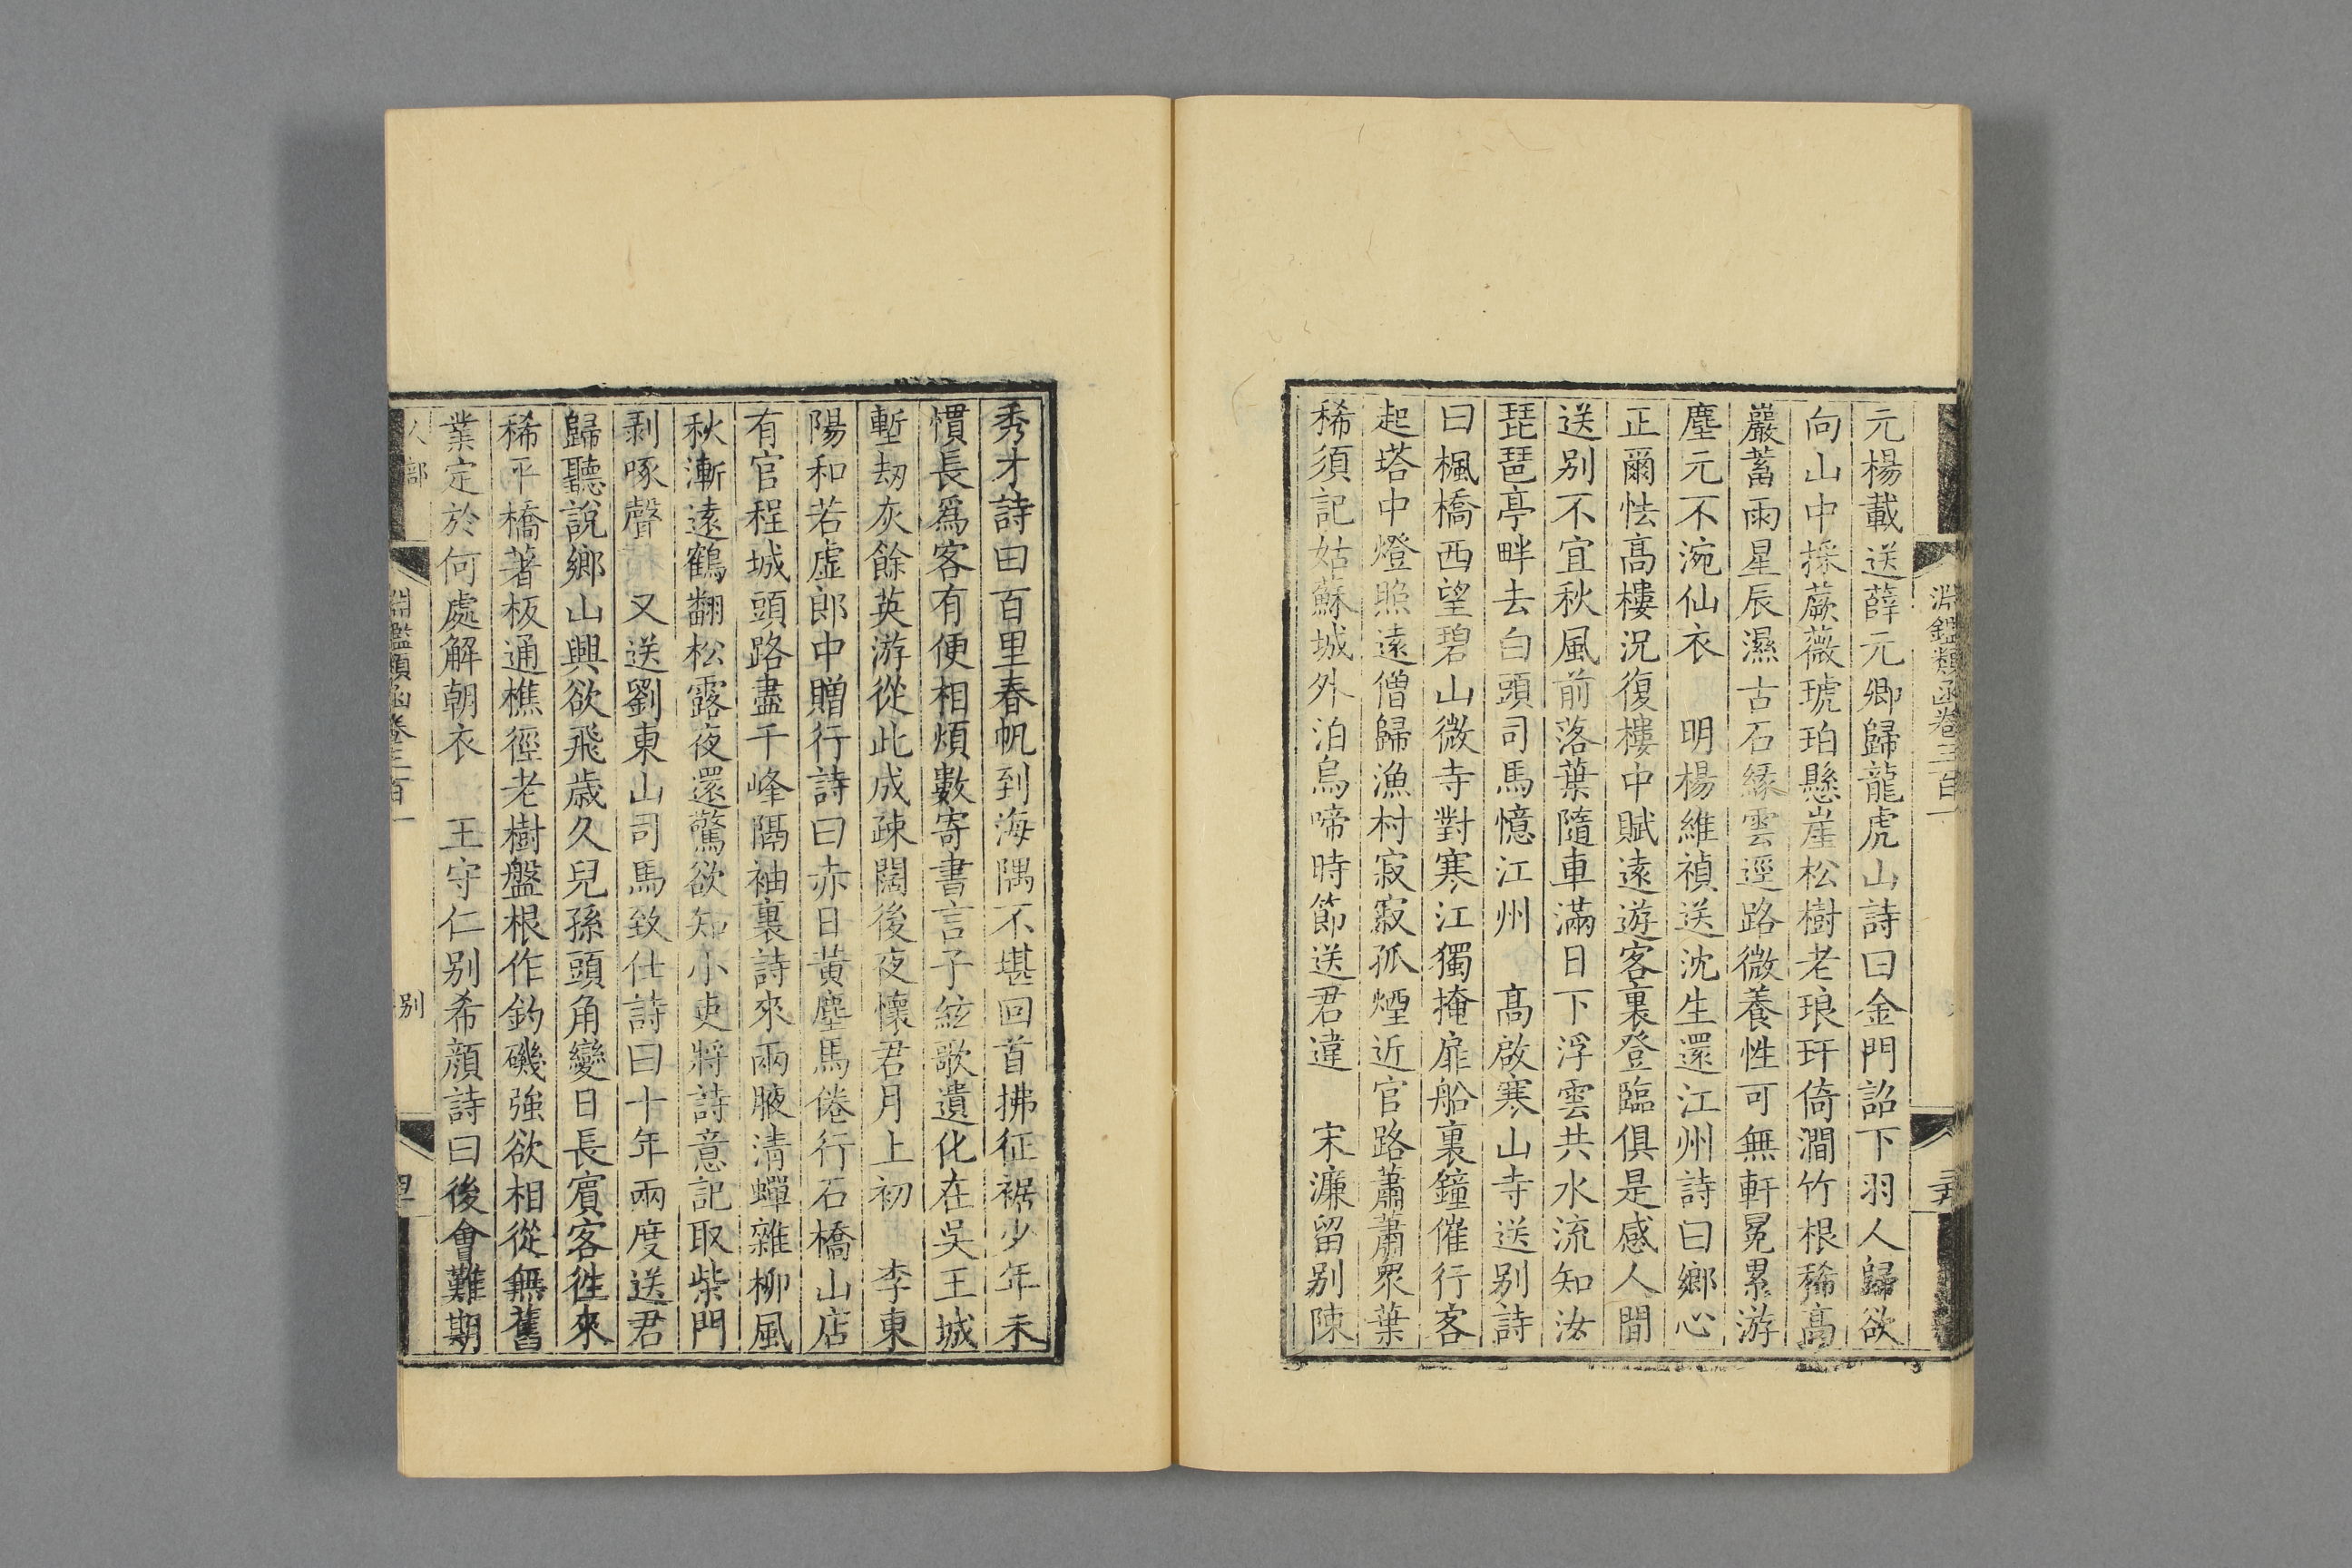 淵鑑類函卷三百一
元楊載送薛元卿歸龍虎山詩曰金門詔下羽人歸欲
向山中採蕨薇琥珀懸崖松樹老琅玕倚澗竹根稀高
巖蓄雨星辰濕古石緣雲逕路微養性可無軒冕累游
塵元不涴仙衣　明楊維禎送沈生還江州詩曰鄉心
正爾怯高樓況復樓中賦遠遊客裏登臨俱是感人間
送別不宜秋風前落葉隨車滿日下浮雲共水流知汝
琵琶亭畔去白頭司馬憶江州　高啟寒山寺送別詩
曰楓橋西望碧山微寺對寒江獨掩扉船裏鐘催行客
起塔中燈照遠僧歸漁村寂寂孤煙近官路蕭蕭眾葉
稀須記姑蘇城外泊烏啼時節送君違　宋濂留別陳
秀才詩曰百里春帆到海隅不堪回首拂征裾少年未
慣長為客有便相煩數寄書言子絃歌遺化在吳王城
塹劫灰餘英游從此成疎闊後夜懷君月上初　李東
陽和若虛郎中贈行詩曰赤日黃塵馬倦行石橋山店
有官程城頭路盡千峰隔袖裏詩來兩腋清蟬雜柳風
秋漸遠鶴翻松露夜還驚欲知小吏將詩意記取柴門
剥啄聲　又送劉東山司馬致仕詩曰十年兩度送君
歸聽說鄉山興欲飛歲久兒孫頭角變日長賓客徃來
稀平橋著板通樵徑老樹盤根作釣磯強欲相從無舊
業定於何處解朝衣　王守仁別希顏詩曰後會難期
人部
淵鑑類函卷三百一
別